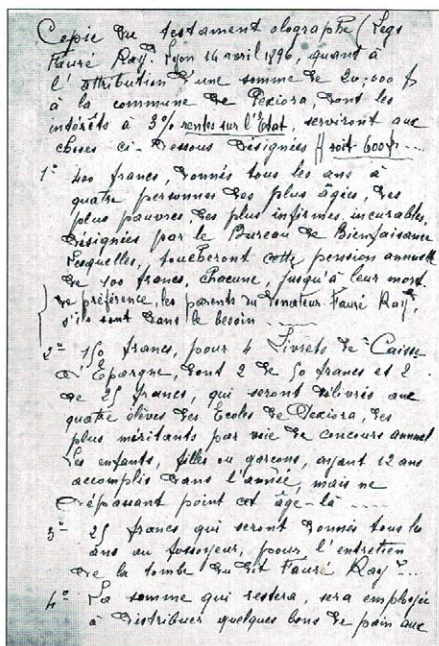 Copie du testament olographe (Legs
Fauré Raym. Lyon 14 avril 1896, quant à
l'attribution d'une somme de 20.000 f
à la commune de Pexiora, dont les
intérêts à 3% rentes sur l'État, serviront aux
choses ci-dessous désignées // soit 600 fr ...
1° 400 francs, donnés tous les ans à
quatre personnes des plus âgées, des
plus pauvres, des plus infirmes, incurables,
désignées par le Bureau de Bienfaisance
Lesquelles, toucheront cette pension annuelle
de 100 francs, chacune, jusqu'à leur mort.
de préférence, les parents du donateur Fauré Raym,
s'ils sont dans le besoin ....
2° 150 francs, pour 4 Livrets de Caisse
d'Épargne, dont 2 de 50 francs et 2
de 25 francs, qui seront délivrés aux
quatre élèves des Écoles de Pexiora, des
plus méritants par voie de concours annuel
Les enfants, filles ou garçons, ayant 12 ans
accomplis dans l'année, mais ne
dépassant point cet âge-là ....
3° 25 francs qui seront donnés tous les
ans au fossoyeur, pour l'entretien
de la tombe du dit Fauré Raym ...
4° La somme qui restera, sera employée
à distribuer quelques bons de pain aux